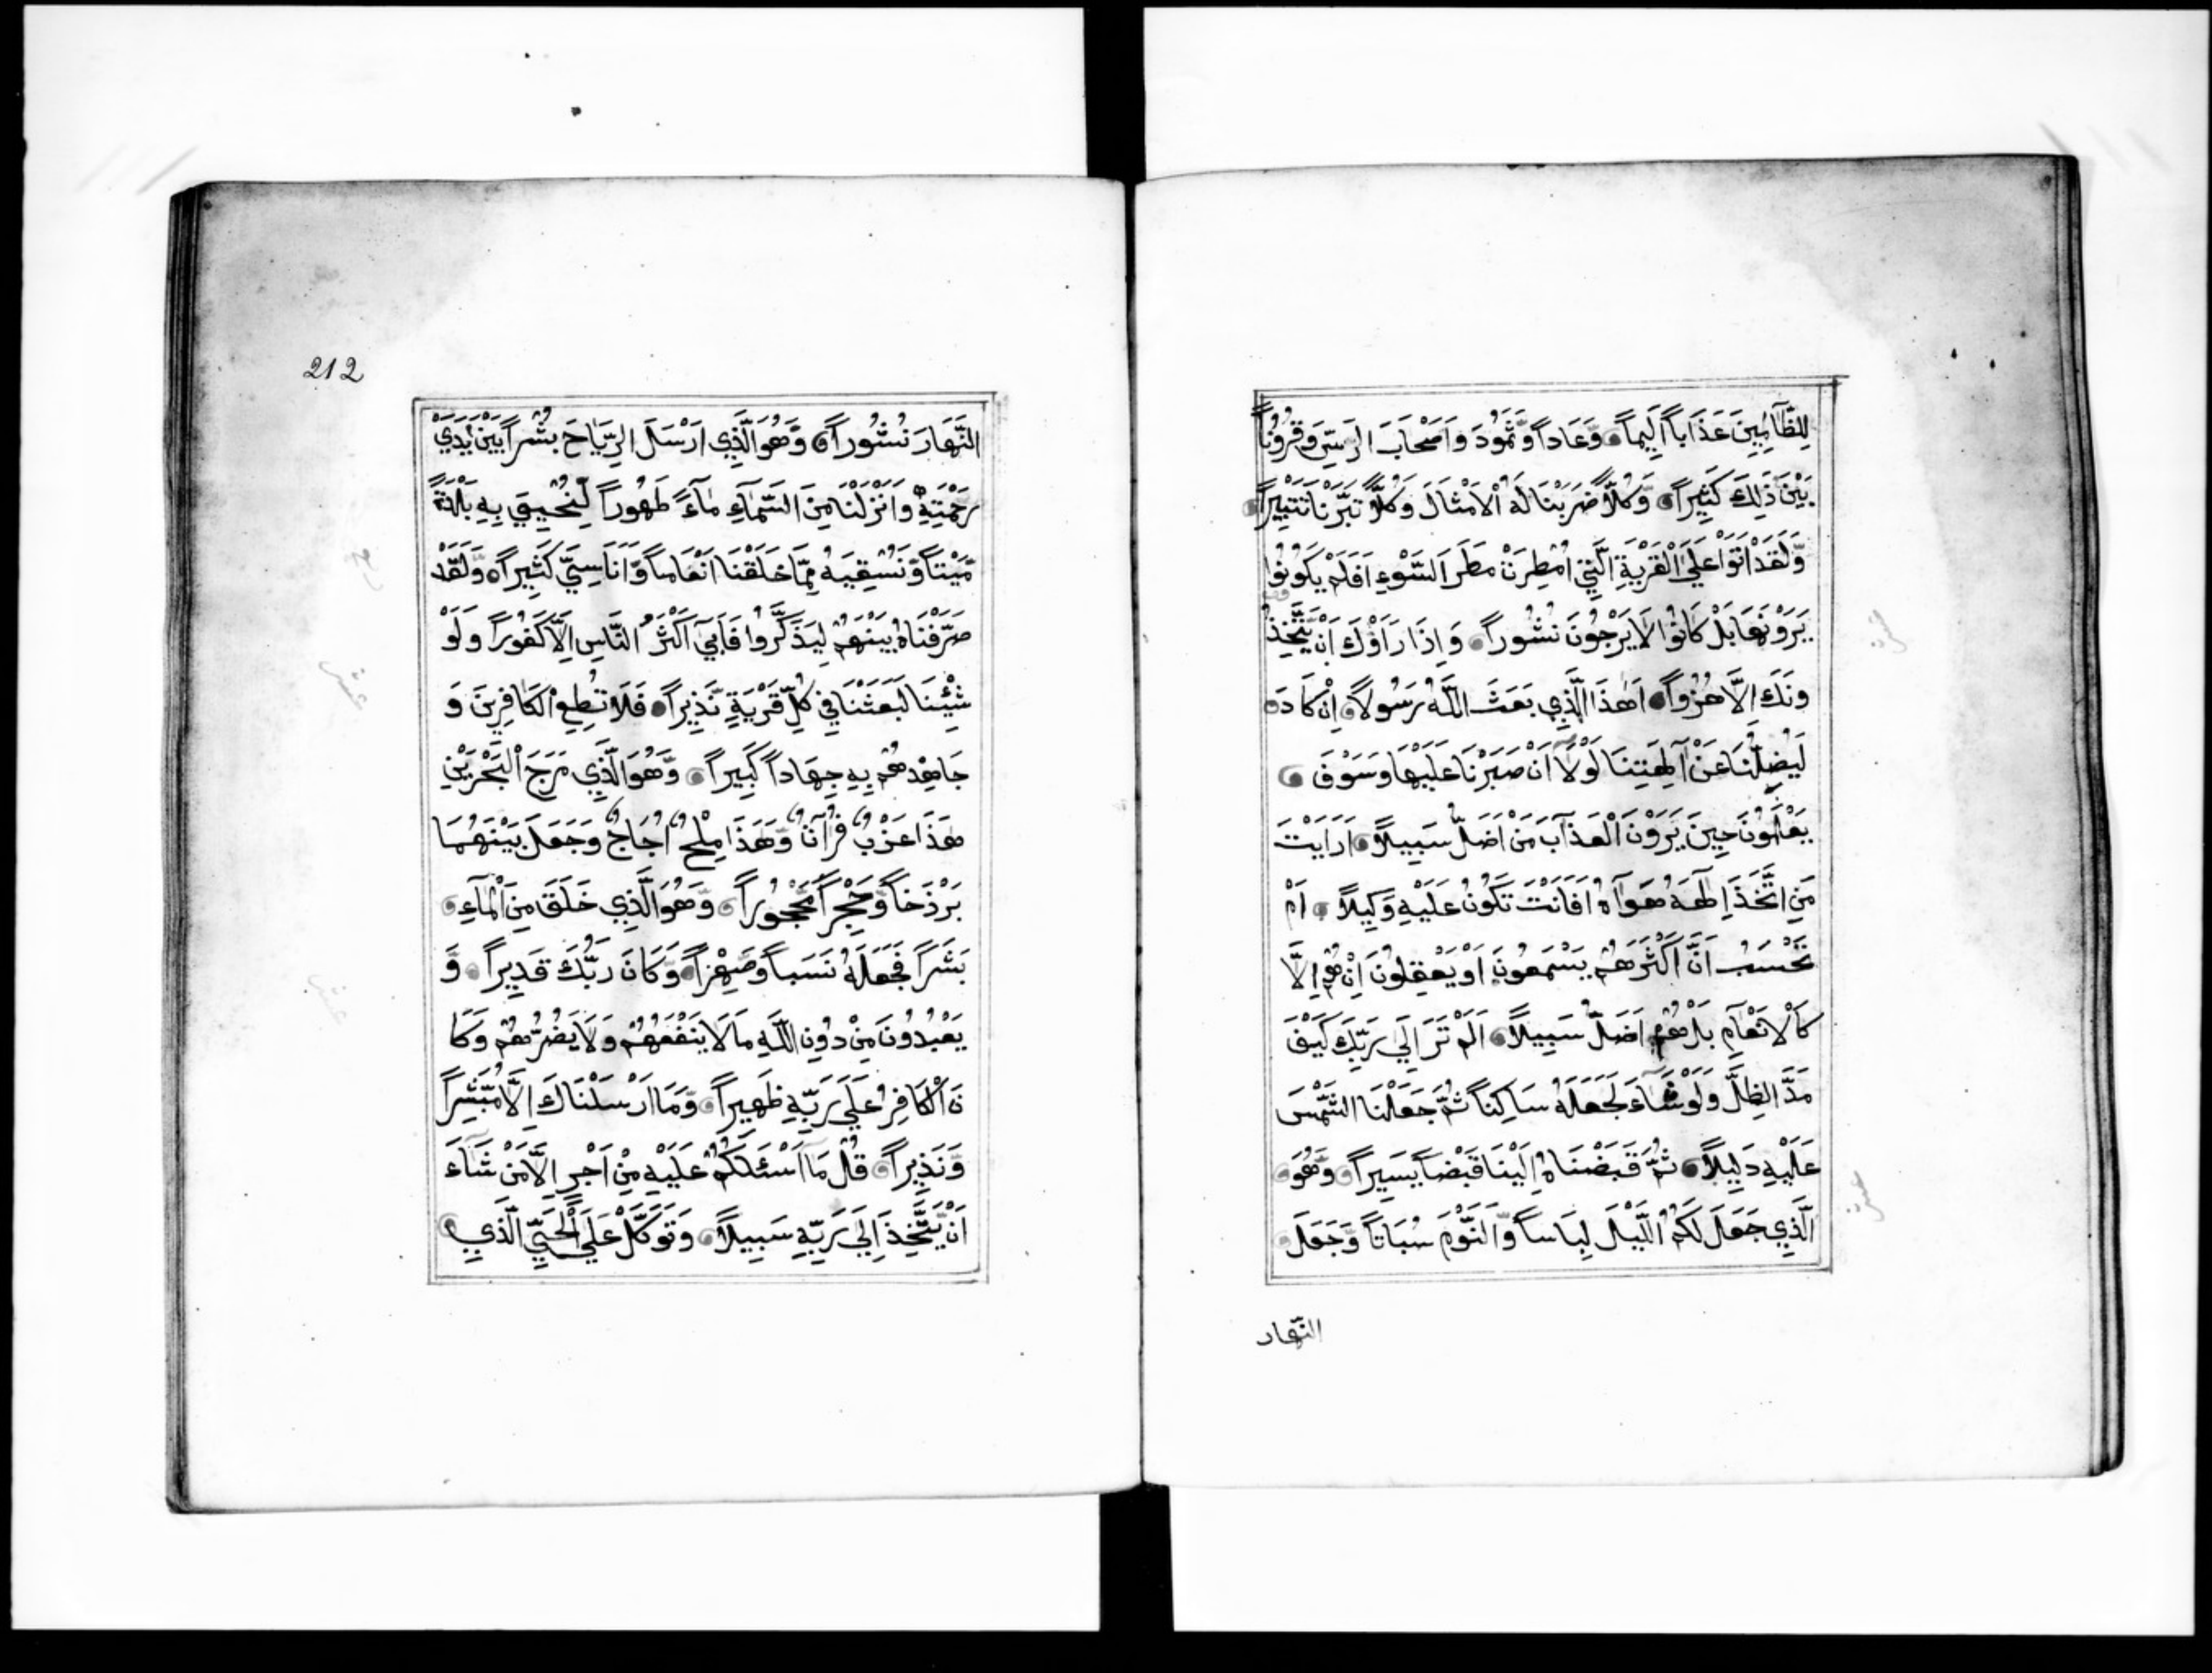 لِلظَّالِمِينَ عَذَاباً اَلِيماً وَّعَاداً وَّثَمُودَ وَاَصْحَابَ الرَّسِّ وَقُرُوناً
بَيْنَ ذٰلِكَ كَثِيراً وَكُلّاً ضَرَبْنَا لَهُ الْاَمْثَالَ وَكُلّاً تَبَّرْنَا تَتْبِيراً
وَّلَقَدْ اَتَوْا عَلَى الْقَرْيَةِ الَّتِي اُمْطِرَتْ مَطَرَ السَّوْءِ اَفَلَمْ يَكُونُوا
يَرَوْنَهَا بَلْ كَانُوا لَا يَرْجُونَ نُشُوراً وَاِذَا رَاَوْكَ اَنْ يَتَّخِذُ
ونَكَ اِلَّا هُزُواً اَهٰذَا الَّذِي بَعَثَ اللَّهُ رَسُولاً اِنْ كَادَ
لَيُضِلُّنَا عَنْ آلِهَتِنَا لَوْلَا اَنْ صَبَرْنَا عَلَيْهَا وَسَوْفَ
يَعْلَمُونَ حِينَ يَرَوْنَ الْعَذَابَ مَنْ اَضَلُّ سَبِيلاً اَرَاَيْتَ
مَنِ اتَّخَذَ اِلٰهَهُ هَوَاهُ اَفَاَنْتَ تَكُونُ عَلَيْهِ وَكِيلاً اَمْ
تَحْسَبُ اَنَّ اَكْثَرَهُمْ يَسْمَعُونَ اَوْ يَعْقِلُونَ اِنْ هُمْ اِلَّا
كَالْاَنْعَامِ بَلْ هُمْ اَضَلُّ سَبِيلاً اَلَمْ تَرَ اِلَى رَبِّكَ كَيْفَ
مَدَّ الظِّلَّ وَلَوْ شَآءَ لَجَعَلَهُ سَاكِناً ثُمَّ جَعَلْنَا الشَّمْسَ
عَلَيْهِ دَلِيلاً ثُمَّ قَبَضْنَاهُ اِلَيْنَا قَبْضاً يَسِيراً وَّهُوَ
الَّذِي جَعَلَ لَكُمُ اللَّيْلَ لِبَاساً وَّالنَّوْمَ سُبَاتاً وَّجَعَلَ
النّهار
212
النَّهَارَ نُشُوراً وَّهُوَ الَّذِي اَرْسَلَ الرِّيَاحَ بُشْراً بَيْنَ يَدَيْ
رَحْمَتِهِ وَاَنْزَلْنَا مِنَ السَّمَآءِ مَآءً طَهُوراً لِّنُحْيِيَ بِهِ بَلْدَةً
مَّيْتاً وَّنُسْقِيَهُ مِمَّا خَلَقْنَا اَنْعَاماً وَّاَنَاسِيَّ كَثِيراً وَّلَقَدْ
صَرَّفْنَاهُ بَيْنَهُمْ لِيَذَّكَّرُوا فَاَبَى اَكْثَرُ النَّاسِ اِلَّا كَفُوراً وَلَوْ
شِئْنَا لَبَعَثْنَا فِي كُلِّ قَرْيَةٍ نَّذِيراً فَلَا تُطِعِ الْكَافِرِينَ وَ
جَاهِدْهُمْ بِهِ جِهَاداً كَبِيراً وَّهُوَ الَّذِي مَرَجَ الْبَحْرَيْنِ
هٰذَا عَزْبٌ فُرْآتٌ وَّهٰذَا مِلْحٌ اُجَاجٌ وَجَعَلَ بَيْنَهُمَا
بَرْذَخاً وَّحِجْراً مَّحْجُوراً وَّهُوَ الَّذِي خَلَقَ مِنَ الْمَآءِ
بَشَراً فَجَعَلَهُ نَسَباً وَّصِهْراً وَّكَانَ رَبُّكَ قَدِيراً وَّ
يَعْبُدُونَ مِنْ دُونِ اللَّهِ مَا لَا يَنْفَعُهُمْ وَلَا يَضُرُّهُمْ وَكَا
نَ الْكَافِرُ عَلَى رَبِّهِ ظَهِيراً وَّمَا اَرْسَلْنَاكَ اِلَّا مُبَشِّراً
وَّنَذِيراً قُلْ مَا اَسْئَلُكُمْ عَلَيْهِ مِنْ اَجْرٍ اِلَّا مَنْ شَآءَ
اَنْ يَتَّخِذَ اِلَى رَبِّهِ سَبِيلاً وَتَوَكَّلْ عَلَى الْحَيِّ الَّذِي